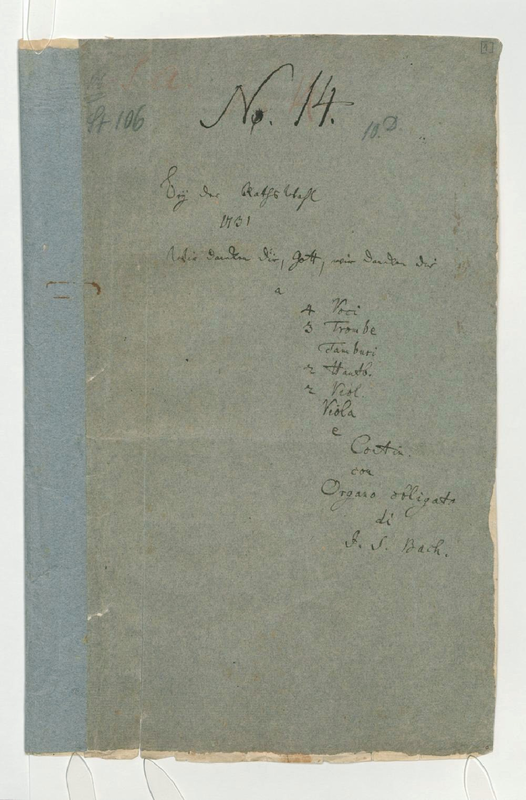 1.
No. 14.
St 106
10. D.
Bey der Rathswahl
1731
Wir danken dir, Gott, wir danken dir
a
4 Voci
3 Trombe
Tamburi
2 Hautb.
2 Viol.
Viola
e
Contin.
con
Organo obligato
di
J. S. Bach.